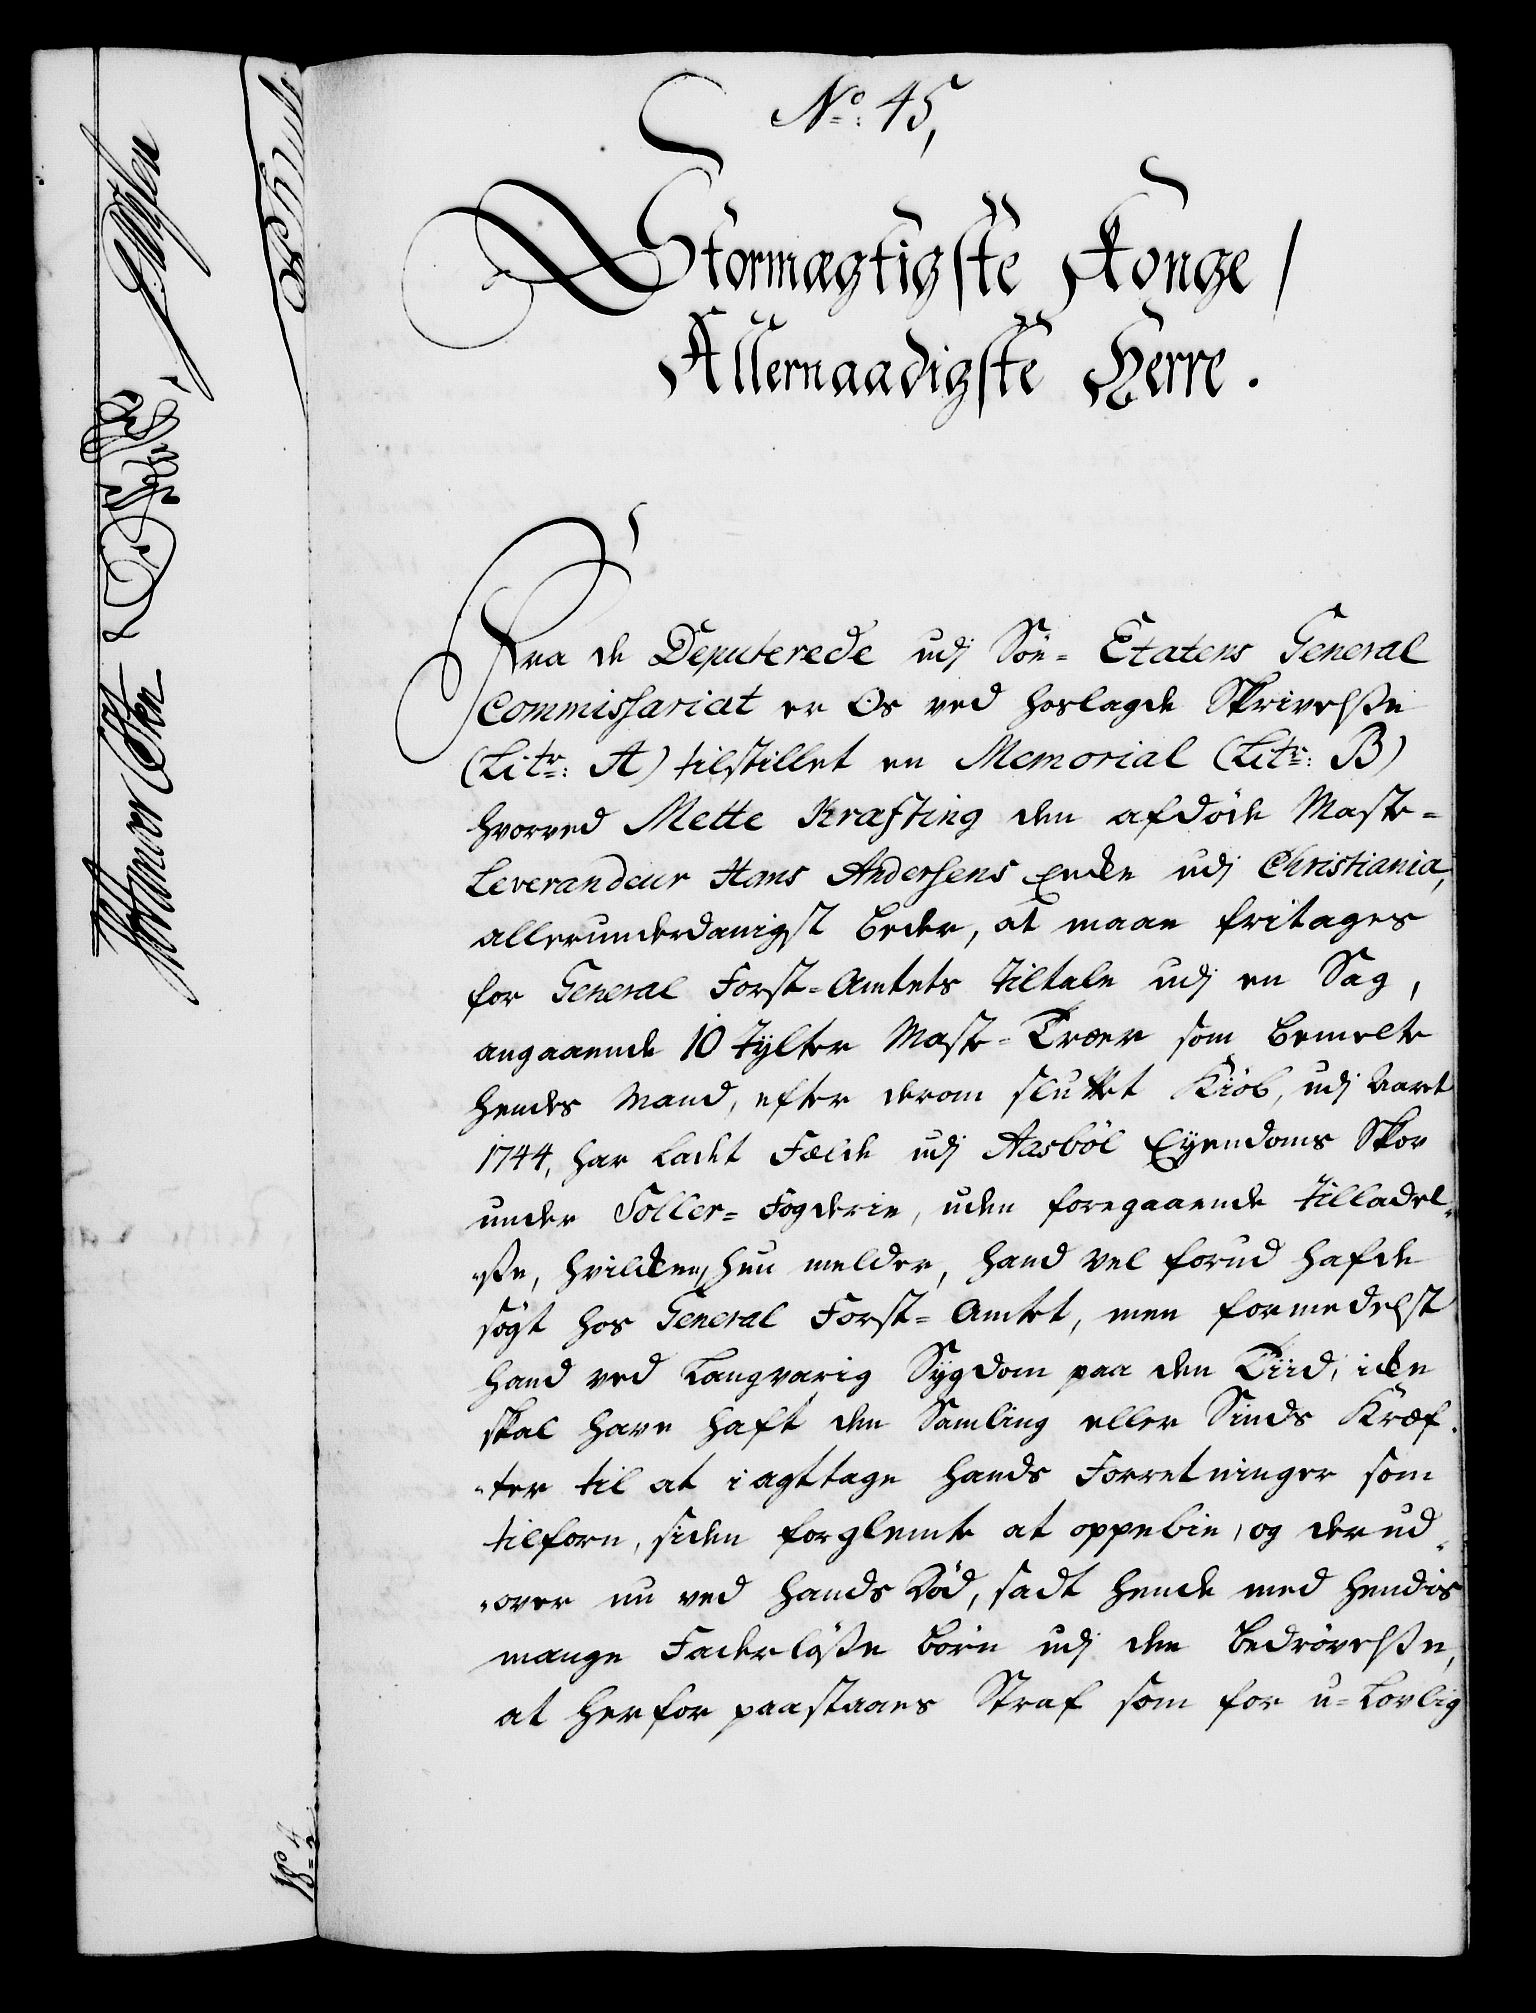 No: 45,
Stormægtigste Konge /
Allernaadigste Herre.
Fra de Deputerede udj Söe-Etatens General
Commissariat er Os ved hoslagde Skrivelße
(Litr: A) tilstillet en Memorial (Litr: B)
hvorved Mette Kræfting den afdöde Maste-
Leverandeur Hans Andersens Encke udj Christiania,
allerunderdanigst beder, at maae fritages
for General Forst-Amtets tiltale udj en Sag,
angaaende 10 tylter Maste-Træer som bemelte
hendes Mand, efter derom sluttet Kiöb, udj Aaret
1744, har ladet Fælde udj Aasböl Eyendoms Skov
under Soller-Fogderie, uden foregaaende tilladel-
-ße, hvilken, hun melder, hand vel forud hafde
sögt hos General Forst-Amtet, men formedelst
hand ved langvarig Sygdom paa den Tiid, icke
skal have haft den Samling eller Sinds Kræf-
-ter til at i agttage hands Forretninger som
tilforn, siden forglemte at oppebie, og derud-
-over nu ved hands Död, sadt hende med hendis
mange Faderlöße börn udj den bedrövelße,
at herfor paastaaes Straf som for u-lovlig